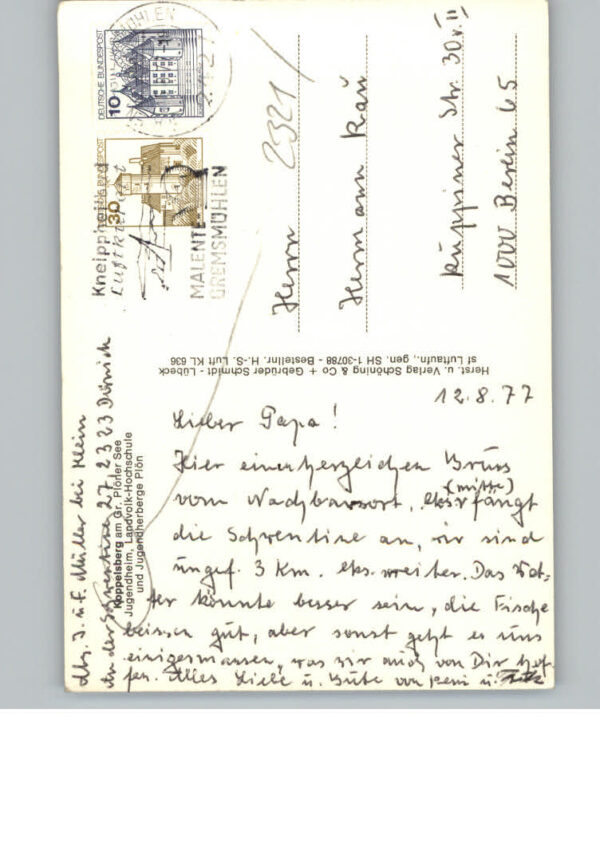 DEUTSCHE BUNDESPOST
10
30
Kneippheilbad
Luftkurort
MALENTE-
GREMSMÜHLEN
2321/
Herrn
Hermann Rau
Ruppiner Str. 30 v. II
1000 Berlin 65
Herst. u. Verlag Schöning & Co + Gebrüder Schmidt - Lübeck
sf Luftaufn., gen. SH 1-30788 - Bestellnr. H.-S. Luft KL 636
Koppelsberg am Gr. Plöner See
Jugendheim, Landvolk-Hochschule
und Jugendherberge Plön
Abs. J. u. F. Müller bei Klein
An der Schwentine 27, 2323 Dörnick
12.8.77
Lieber Papa!
Hier einen herzlichen Gruss
(mitte)
vom Nachbarsort, fängt
die Schwentine an, wir sind
ungef. 3 Km. weiter. Das Wet-
ter könnte besser sein, die Fische
beissen gut, aber sonst geht es uns
einigermassen, was wir auch von Dir hof-
fen. Alles Liebe u. Gute von u. Fritz